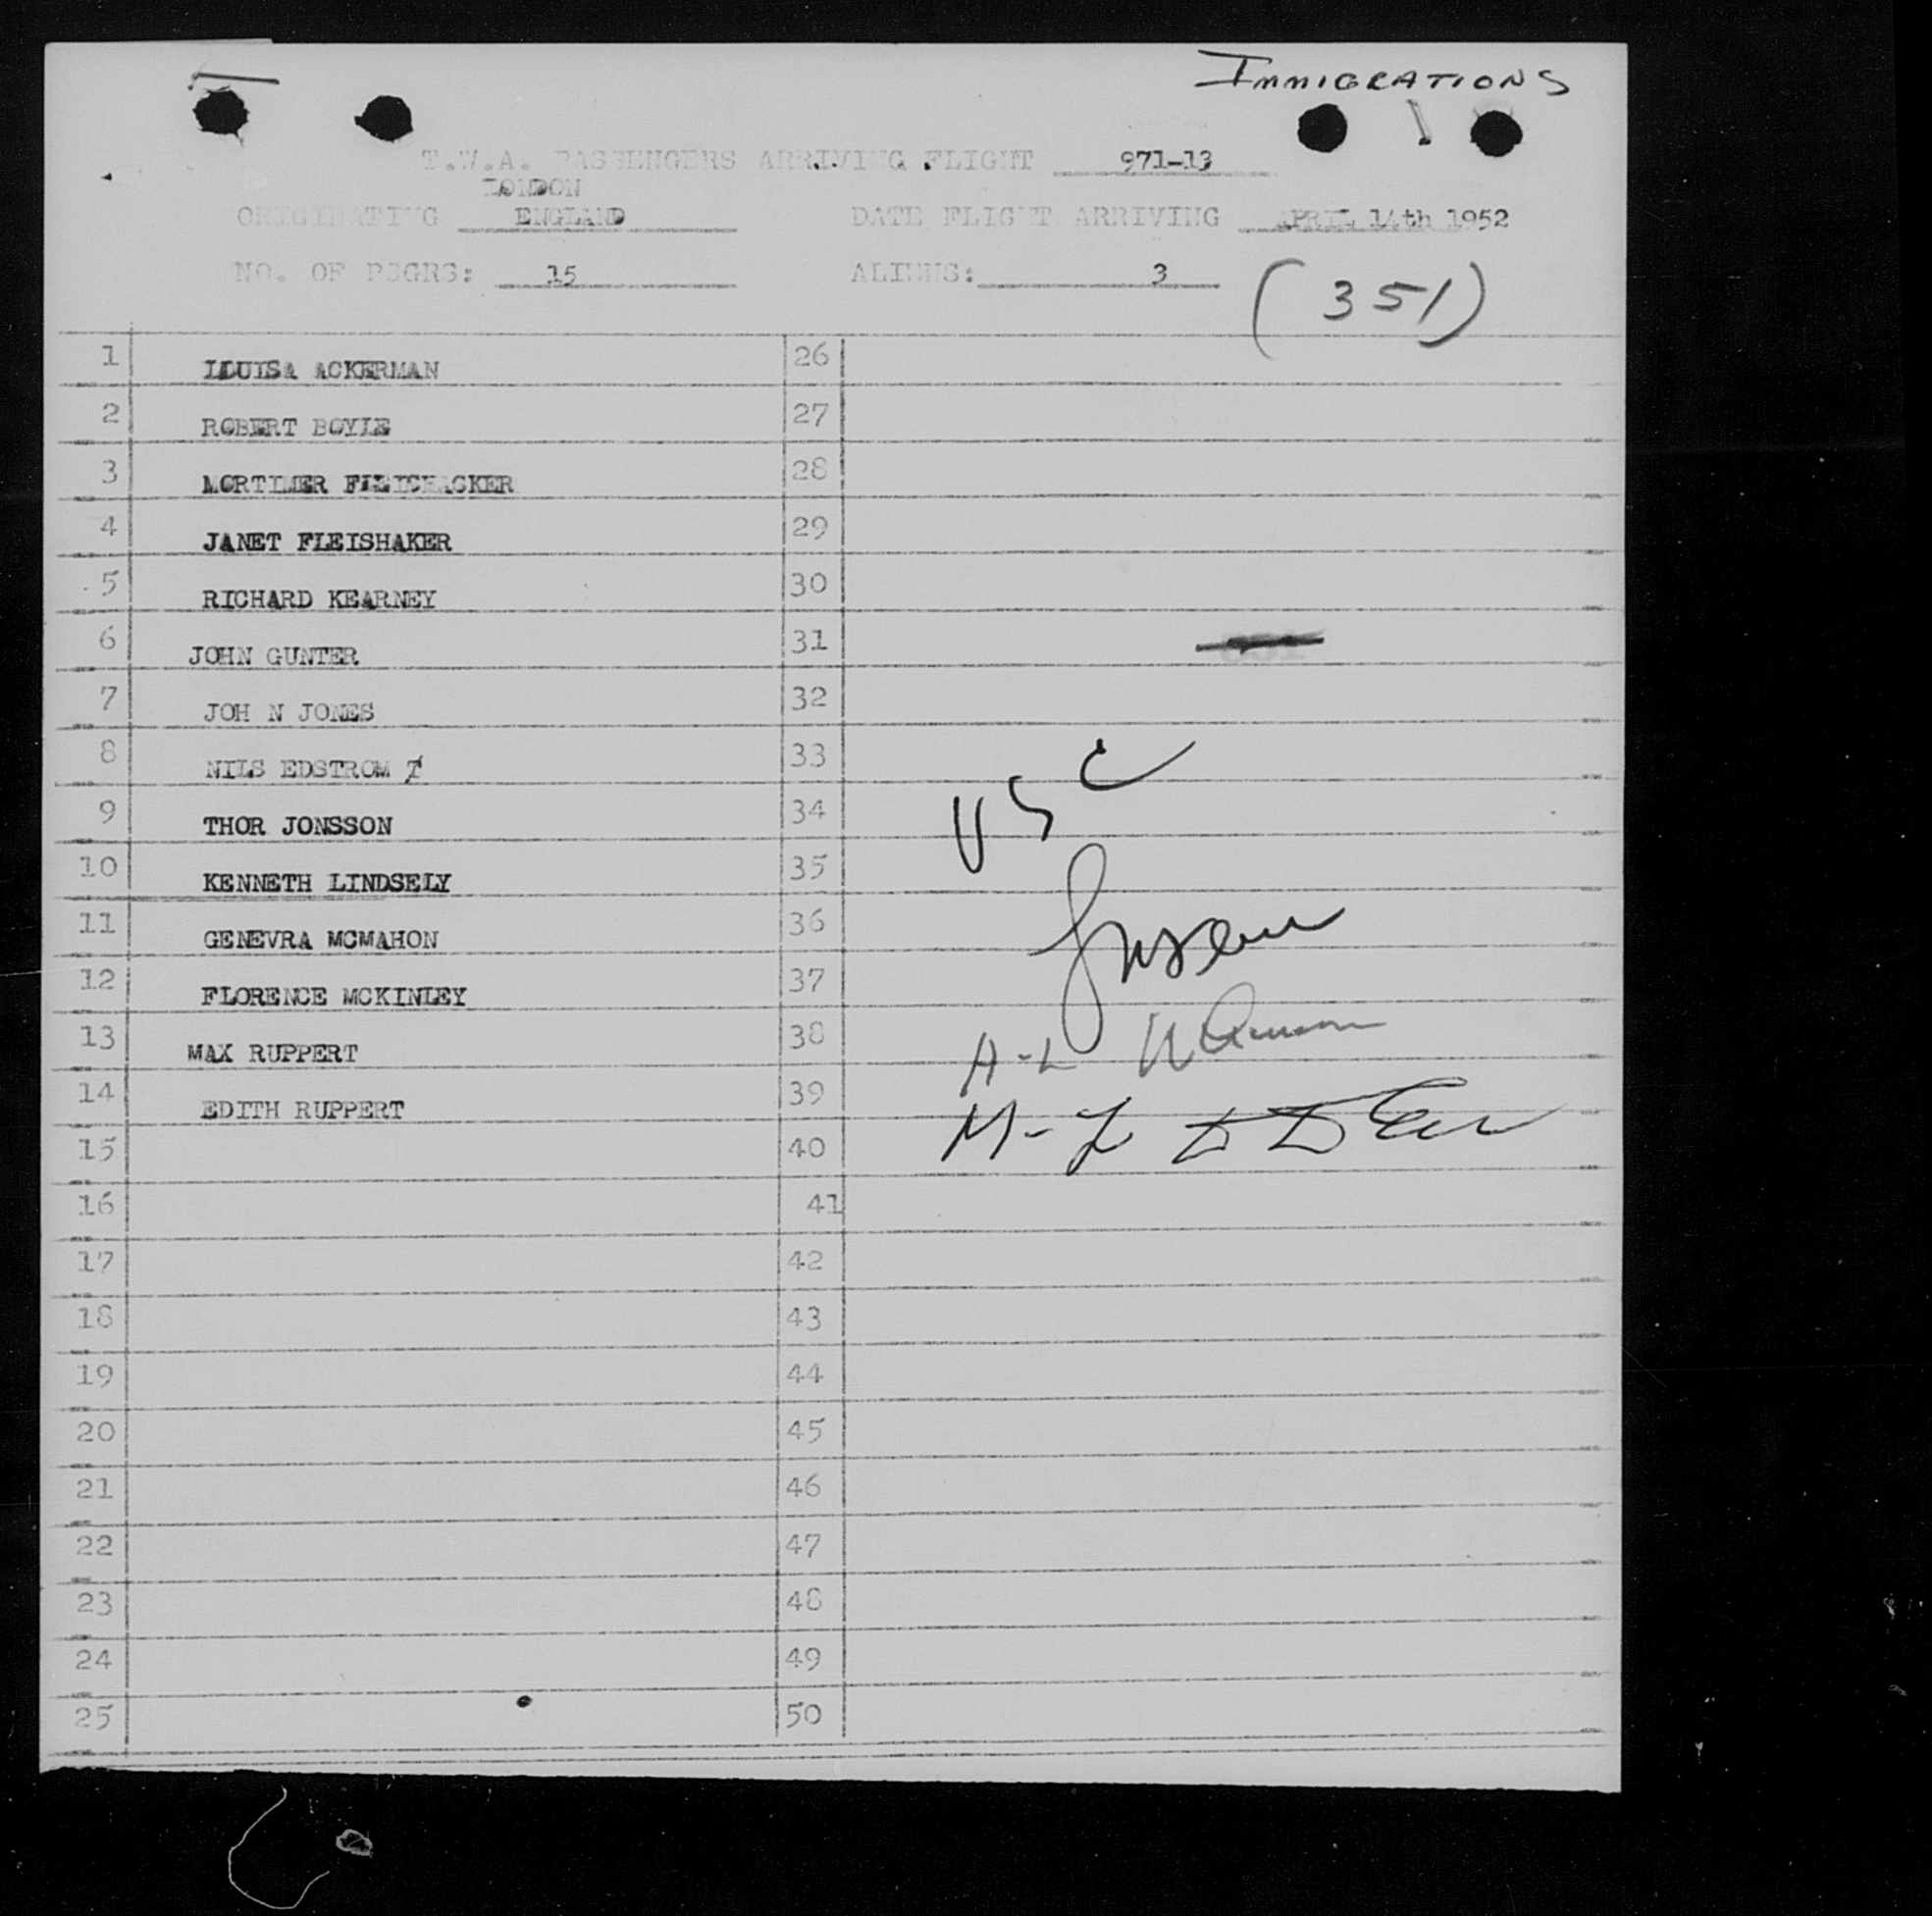 IMMIGRATIONS
T.W.A. PASSENGERS ARRIVING FLIGHT 971-13
LONDON
ORIGINATING ENGLAND DATE FLIGHT ARRIVING APRIL 14th 1952
NO. OF PSGRS: 15 ALIENS: 3
(351)
1 LOUISA ACKERMAN 26
2 ROBERT BOYLE 27
3 MORTIMER 28
4 JANET FLEISHAKER 29
5 RICHARD KEARNEY 30
6 JOHN GUNTER 31
7 JOH N JONES 32
8 NILS EDSTROM 33
9 THOR JONSSON 34
10 KENNETH LINDSELY 35
11 GENEVRA MCMAHON 36
12 FLORENCE MCKINLEY 37
13 MAX RUPPERT 38
14 EDITH RUPPERT 39
15 40
16 41
17 42
18 43
19 44
20 45
21 46
22 47
23 48
24 49
25 50
USC
A-L
M-L